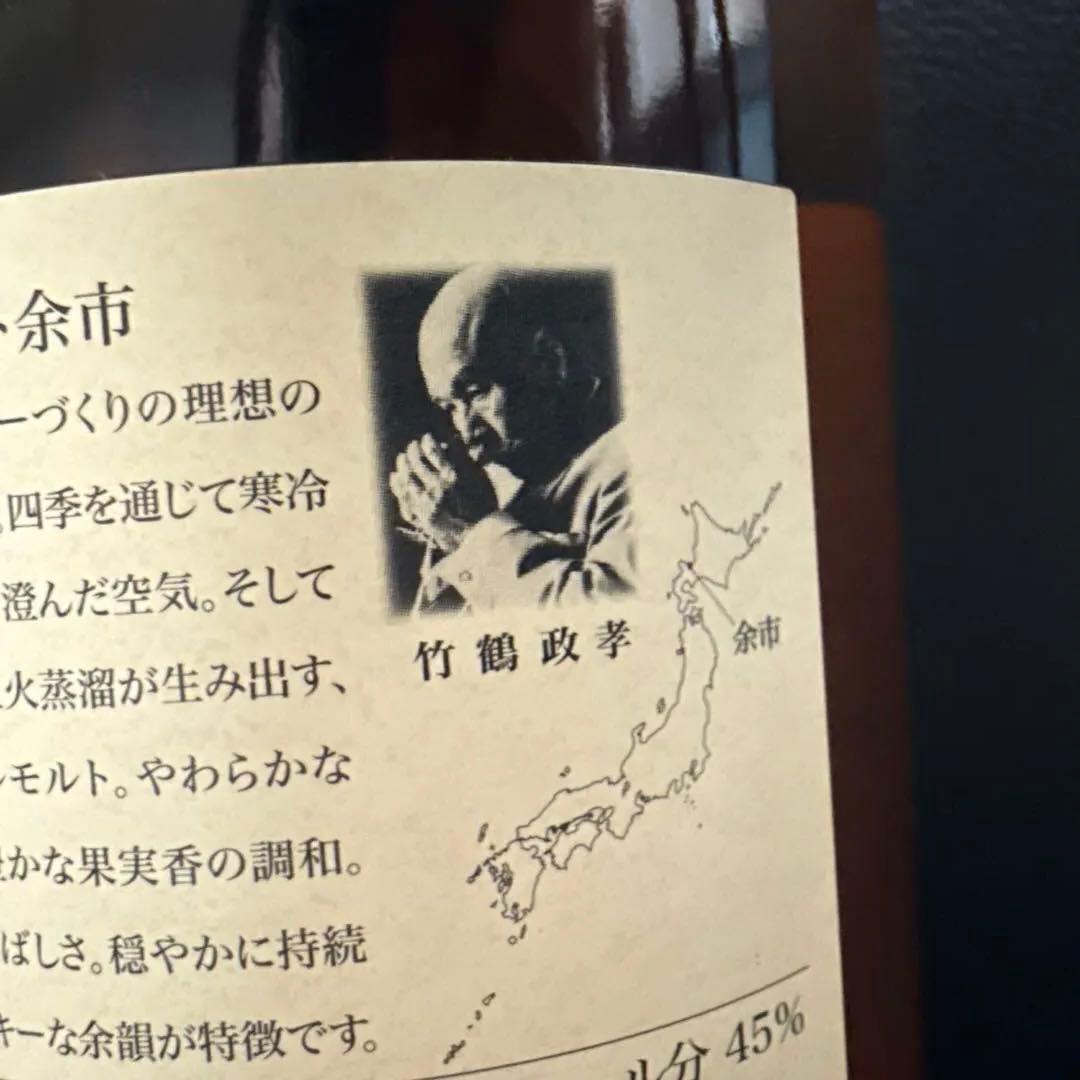 余市
ーづくりの理想の
四季を通じて寒冷
澄んだ空気。そして
火蒸溜が生み出す、
モルト。やわらかな
かな果実香の調和。
ばしさ。穏やかに持続
キーな余韻が特徴です。
竹鶴政孝
余市
ル分 45%